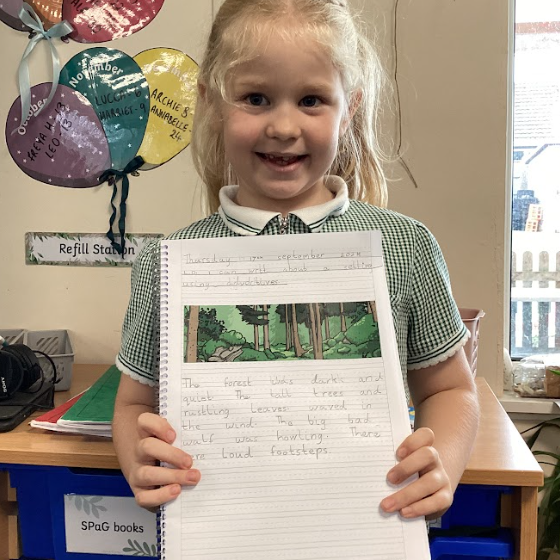 October
FREYA H
LEO
November
LUCCA
HARRIET - 9
ARCHIE 8
ANNABELLE
24
Refill Station
Thursday September
I can writ about a
using adjectives
The forest looks darke and
quiet. The tall trees and
rustling leaves waved in
the wind. The big bad
wolf was howling. There
are loud footsteps.
SPaG books
SONY